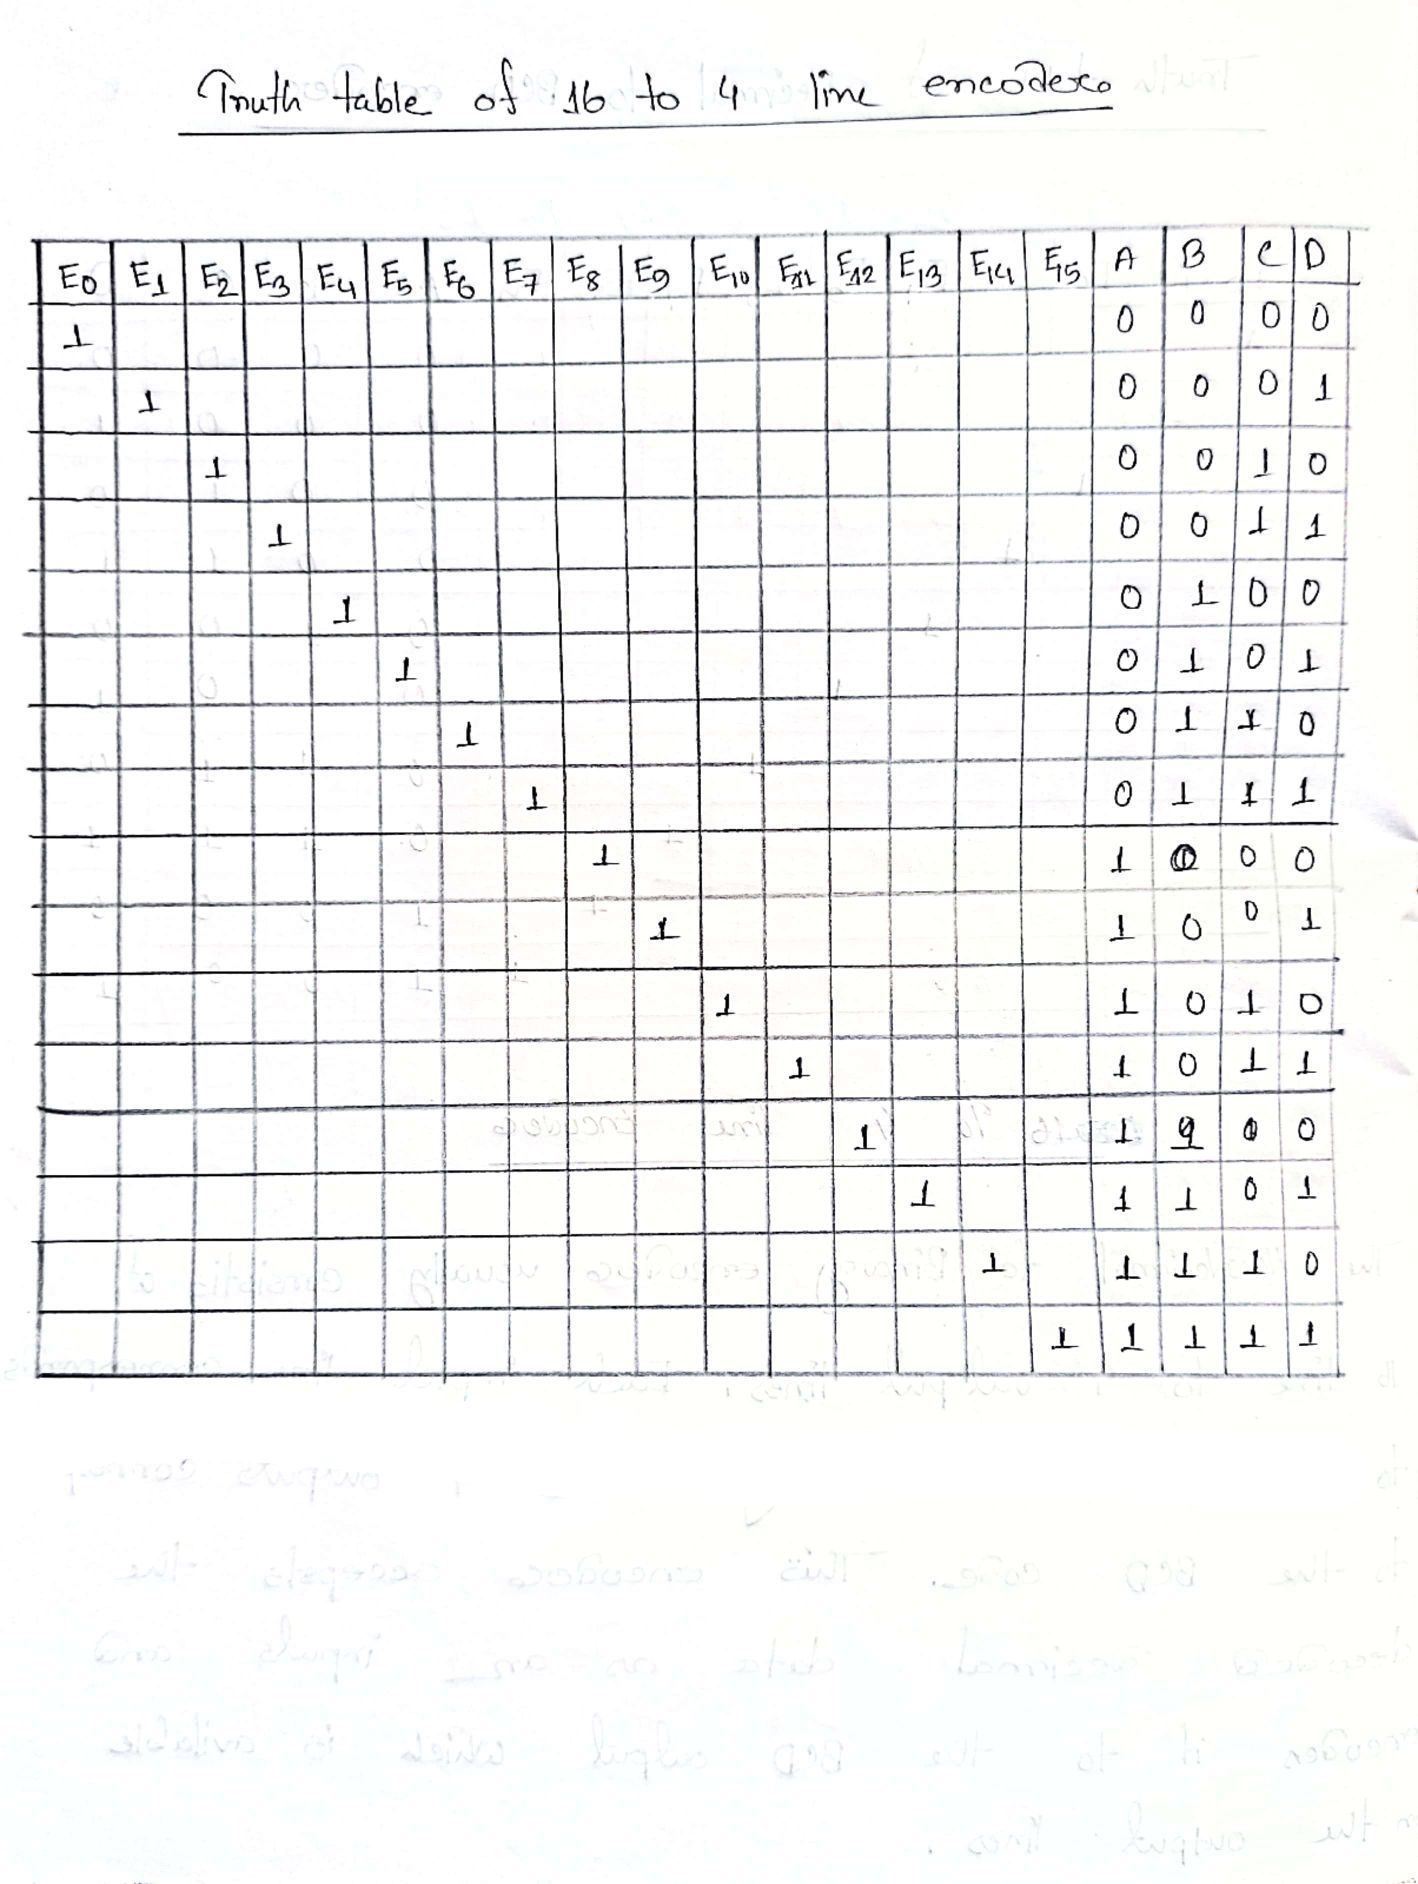 Truth table of 16 to 4 line encoder
E0 E1 E2 E3 E4 E5 E6 E7 E8 E9 E10 E11 E12 E13 E14 E15 A B C D
1 0 0 0 0
1 0 0 0 1
1 0 0 1 0
1 0 0 1 1
1 0 1 0 0
1 0 1 0 1
1 0 1 1 0
1 0 1 1 1
1 1 0 0 0
1 1 0 0 1
1 1 0 1 0
1 1 0 1 1
1 1 1 0 0
1 1 1 0 1
1 1 1 1 0
1 1 1 1 1